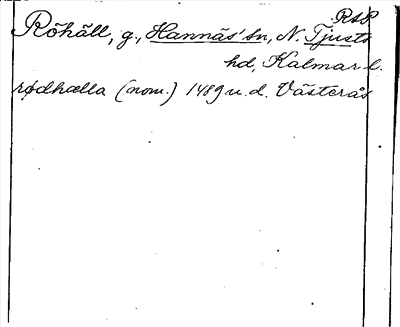 RSP
Röhäll, g., Hannäs' sn, N. Tjusts
hd, Kalmar l.
rødhælla (nom.) 1489 u.d. Västerås